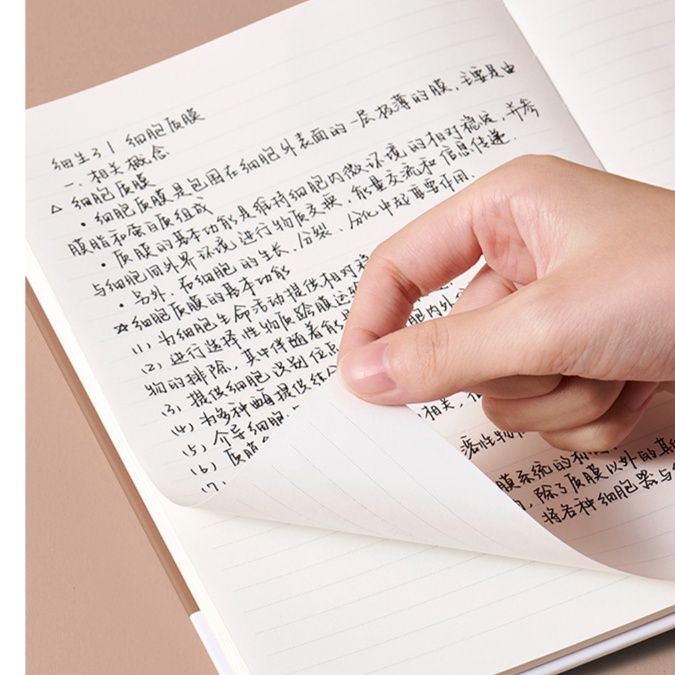 细生3 | 细胞质膜
一、相关概念
△ 细胞质膜
·细胞质膜是包围在细胞外表面的一层极薄的膜，主要是由
膜脂和蛋白质组成
·质膜的基本功能是维持细胞内微环境的相对稳定，并参
与细胞同外界环境进行物质交换、能量交流和信息传递．
·另外，在细胞的生长、分裂、分化中起重要作用．
☆细胞质膜的基本功能
(1) 为细胞生命活动提供相对
(2) 进行选择性物质跨膜运 细胞内外
物的排除，其中伴随着能
(3) 提供细胞识别位点
(4) 为多种酶提供结 相关，
(5) 介导细胞
(6) 质膜 溶性物
(7 膜系统的
除了质膜以外的其
将各种细胞器与